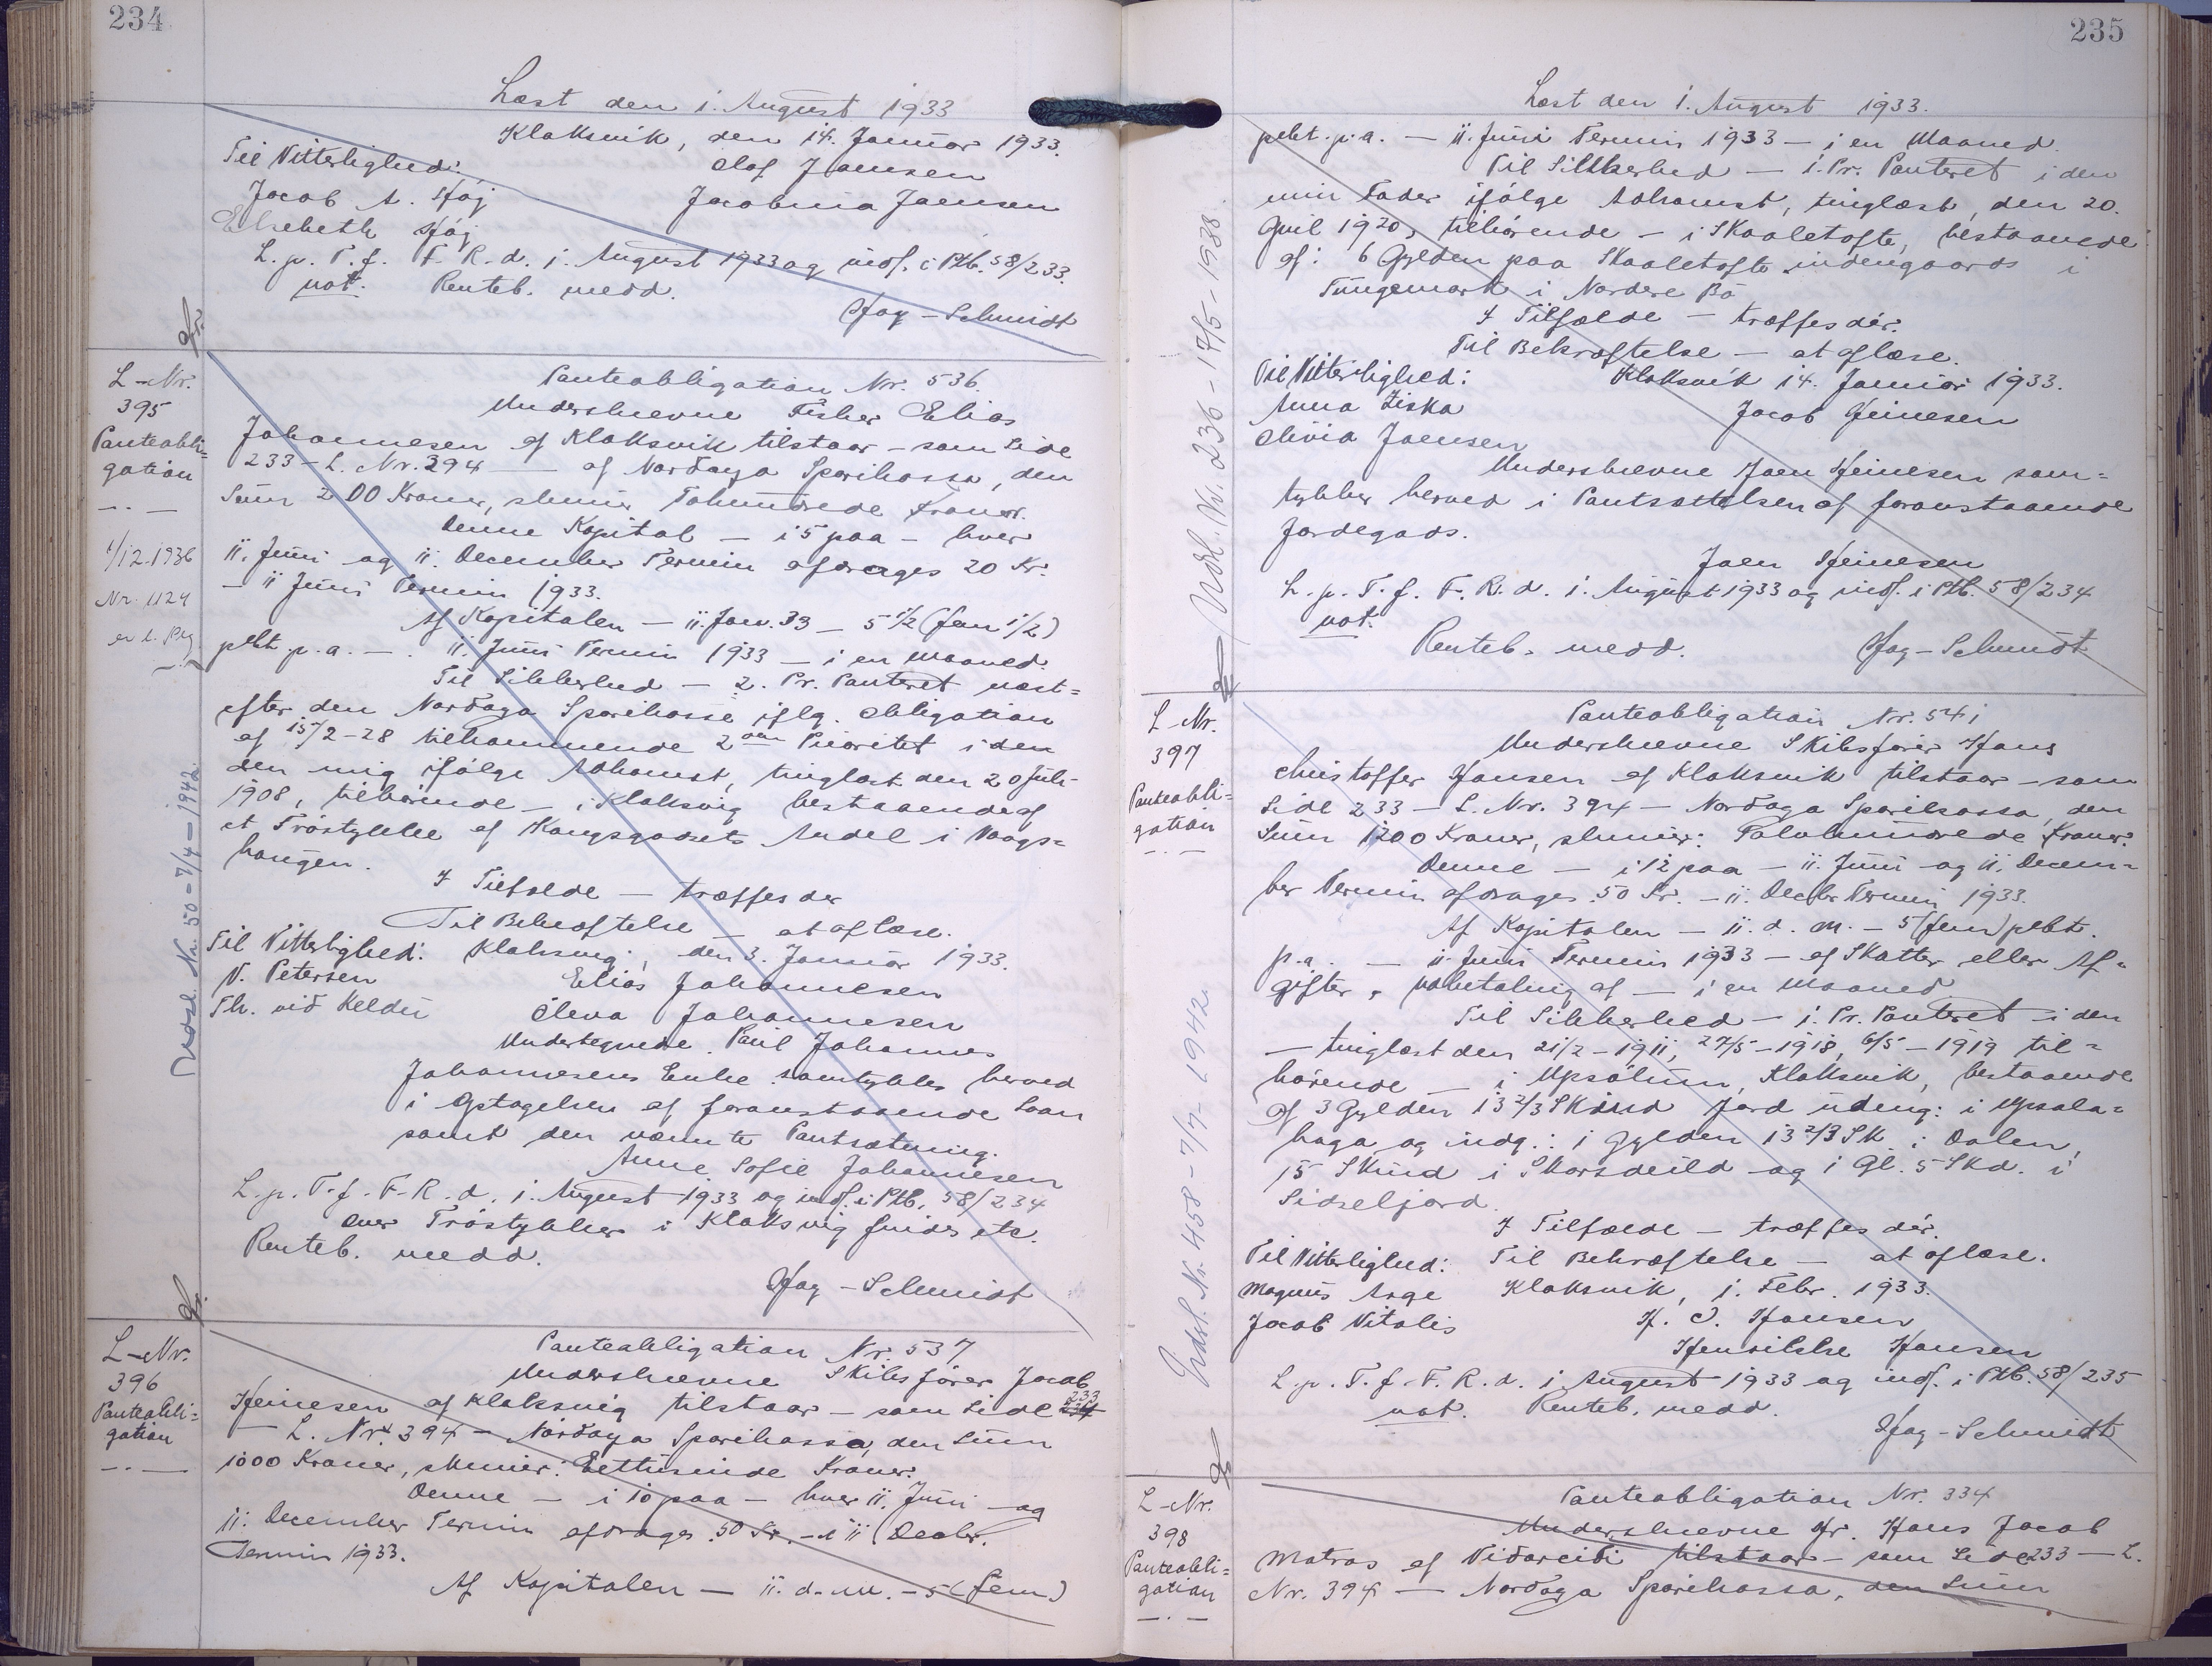 234
Læst den 1. August 1933
Klaksvik, den 14. Januar 1933.
Til Vitterlighed:
Olaf Joensen
Jacob A. Høj
Jacobina Joensen
Elsebeth Høj
L. p. T. f. F. R. d. 1. August 1933 og indf. i Ptb. 58/233.
not. Renteb. medd.
Høg-Schmidt
L-Nr.
395
Panteobli=
gation
1/12.1936
Nr. 1124
Panteobligation Nr. 536.
Underskrevne Fisker Elias
Johannesen af Klaksvik tilstaar - som Side
233 - L. Nr. 394 — af Nordoya Sparikassa, den
Sum 200 Kroner, skriver Tohundrede Kroner.
Denne Kapital — i 5 paa - hver
11. Juni og 11. December Termin afdrages 20 Kr.
- 11 Juni Termin 1933.
Af Kapitalen - 11. Jan. 33 - 5 1/2 (fem 1/2)
pCt. p. a. — . 11. Juni Termin 1933 — i en Maaned.
Til Sikkerhed — 2. Pr. Panteret næst=
efter den Nordoya Sparikasse iflg. Obligation
af 15/2-28 tilkommende 2den Prioritet i den
den mig ifølge Adkomst, tinglæst den 20 Juli
1908, tilhørende - i Klaksvig bestaaende af
et Tróstykke af Kongsgodsets Andel i Vaags=
haugen.
I Tilfælde — træffes der
Til Bekræftelse — at aflæse.
Til Vitterlighed: Klaksvig, den 3. Januar 1933.
V. Petersen
Elias Johannesen
Th. við Keldu
Oleva Johannesen
Undertegnede Paul Johannes
Johannesens Enke samtykker herved
i Optagelsen af foranstaaende Laan
samt den nævnte Pantsætning.
Anne Sofie Johannesen
L. p. T. f. F. R. d. 1. August 1933 og indf. i Ptb. 58/234
over Tróstykker i Klaksvig findes etc.
Renteb. medd.
Høg-Schmidt
Udsl. Nr. 50 - 7/4 - 1942.
L-Nr.
396
Panteobli=
gation
Panteobligation Nr. 537
Underskrevne Skibsfører Jacob
Heinesen af Klaksvig tilstaar - som Side 233
- L. Nr. 394 - Nordoya Sparikassa, den Sum
1000 Kroner, skriver: Ettusinde Kroner.
Denne — i 10 paa — hver 11. Juni og
11. December Termin afdrages 50 Kr. - 11 Decbr.
Termin 1933.
Af Kapitalen — 11. d. M. - 5 (fem)
235
Læst den 1. August 1933.
pCt. p. a. — 11. Juni Termin 1933 - i en Maaned.
Til Sikkerhed — 1. Pr. Panteret i den
min Fader ifølge Adkomst, tinglæst, den 20.
April 1920, tilhørende - i Skaaletofte, bestaaende
af: 6 Gylden paa Skaaletofte indengaards i
Tungemark i Nordere Bø
I Tilfælde — træffes dér.
Til Bekræftelse — at aflæse.
Til Vitterlighed: Klaksvik 14. Januar 1933.
Anna Ziska
Jacob Heinesen
Olivia Joensen
Underskrevne Joen Heinesen sam=
tykker herved i Pantsættelsen af foranstaaende
Jordegods.
Joen Heinesen
L. p. T. f. F. R. d. 1. August 1933 og indf. i Ptb. 58/234
not.
Renteb. medd. Høg-Schmidt
Udsl. Nr. 236 - 17/5 - 1938.
L-Nr.
397
Panteobli=
gation
Panteobligation Nr. 541
Underskrevne Skibsfører Hans
Christoffer Hansen af Klaksvik tilstaar - som
Side 233 - L. Nr. 394 - Nordoya Sparikassa, den
Sum 1200 Kroner, skriver: Tolvhundrede Kroner.
Denne — i 12 paa - 11. Juni og 11. Decem=
ber Termin afdrages 50 Kr. - 11. Decbr Termin 1933.
Af Kapitalen - 11. d. M. - 5 (fem) pCt.
p. a. — 11. Juni Termin 1933 - af Skatter eller Af=
gifter, Udbetaling af — i en Maaned
Til Sikkerhed — 1. Pr. Panteret i den
— tinglæst den 21/2 - 1911, 27/5 - 1918, 6/5 - 1919 til=
hørende — i Upsölum, Klaksvik, bestaaende
af 3 Gylden 13 2/3 Skind Jord udeng: i Upsala=
haga og indg.: 1 Gylden 13 2/3 Sk. i Dalen,
15 Skind i Skarsdeild og 1 Gl. 5 Skd. i
Sidseljord.
I Tilfælde — træffes dér.
Til Vitterlighed: Til Bekræftelse — at aflæse.
Magnus Arge Klaksvik, 1. Febr. 1933.
Jacob Vitalis
H. C. Hansen
Henrikke Hansen
L. p. T. f. F. R. d. 1 August 1933 og indf. i Ptb. 58/235
not. Renteb. medd.
Høg-Schmidt
Udsl. Nr. 458 - 7/7 - 1942.
L-Nr.
398
Panteobli=
gation
Panteobligation Nr. 334
Underskrevne Hr. Hans Jacob
Matras af Vidareidi tilstaar - som Side 233 - L.
Nr. 394 — Nordoya Sparikassa, den Sum